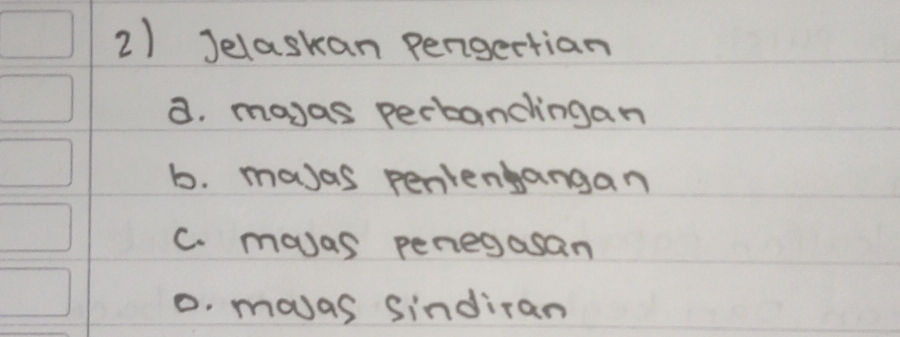 2) Jelaskan Pengertian
a. majas perbandingan
b. majas pententangan
c. majas penegasan
D. majas sindiran